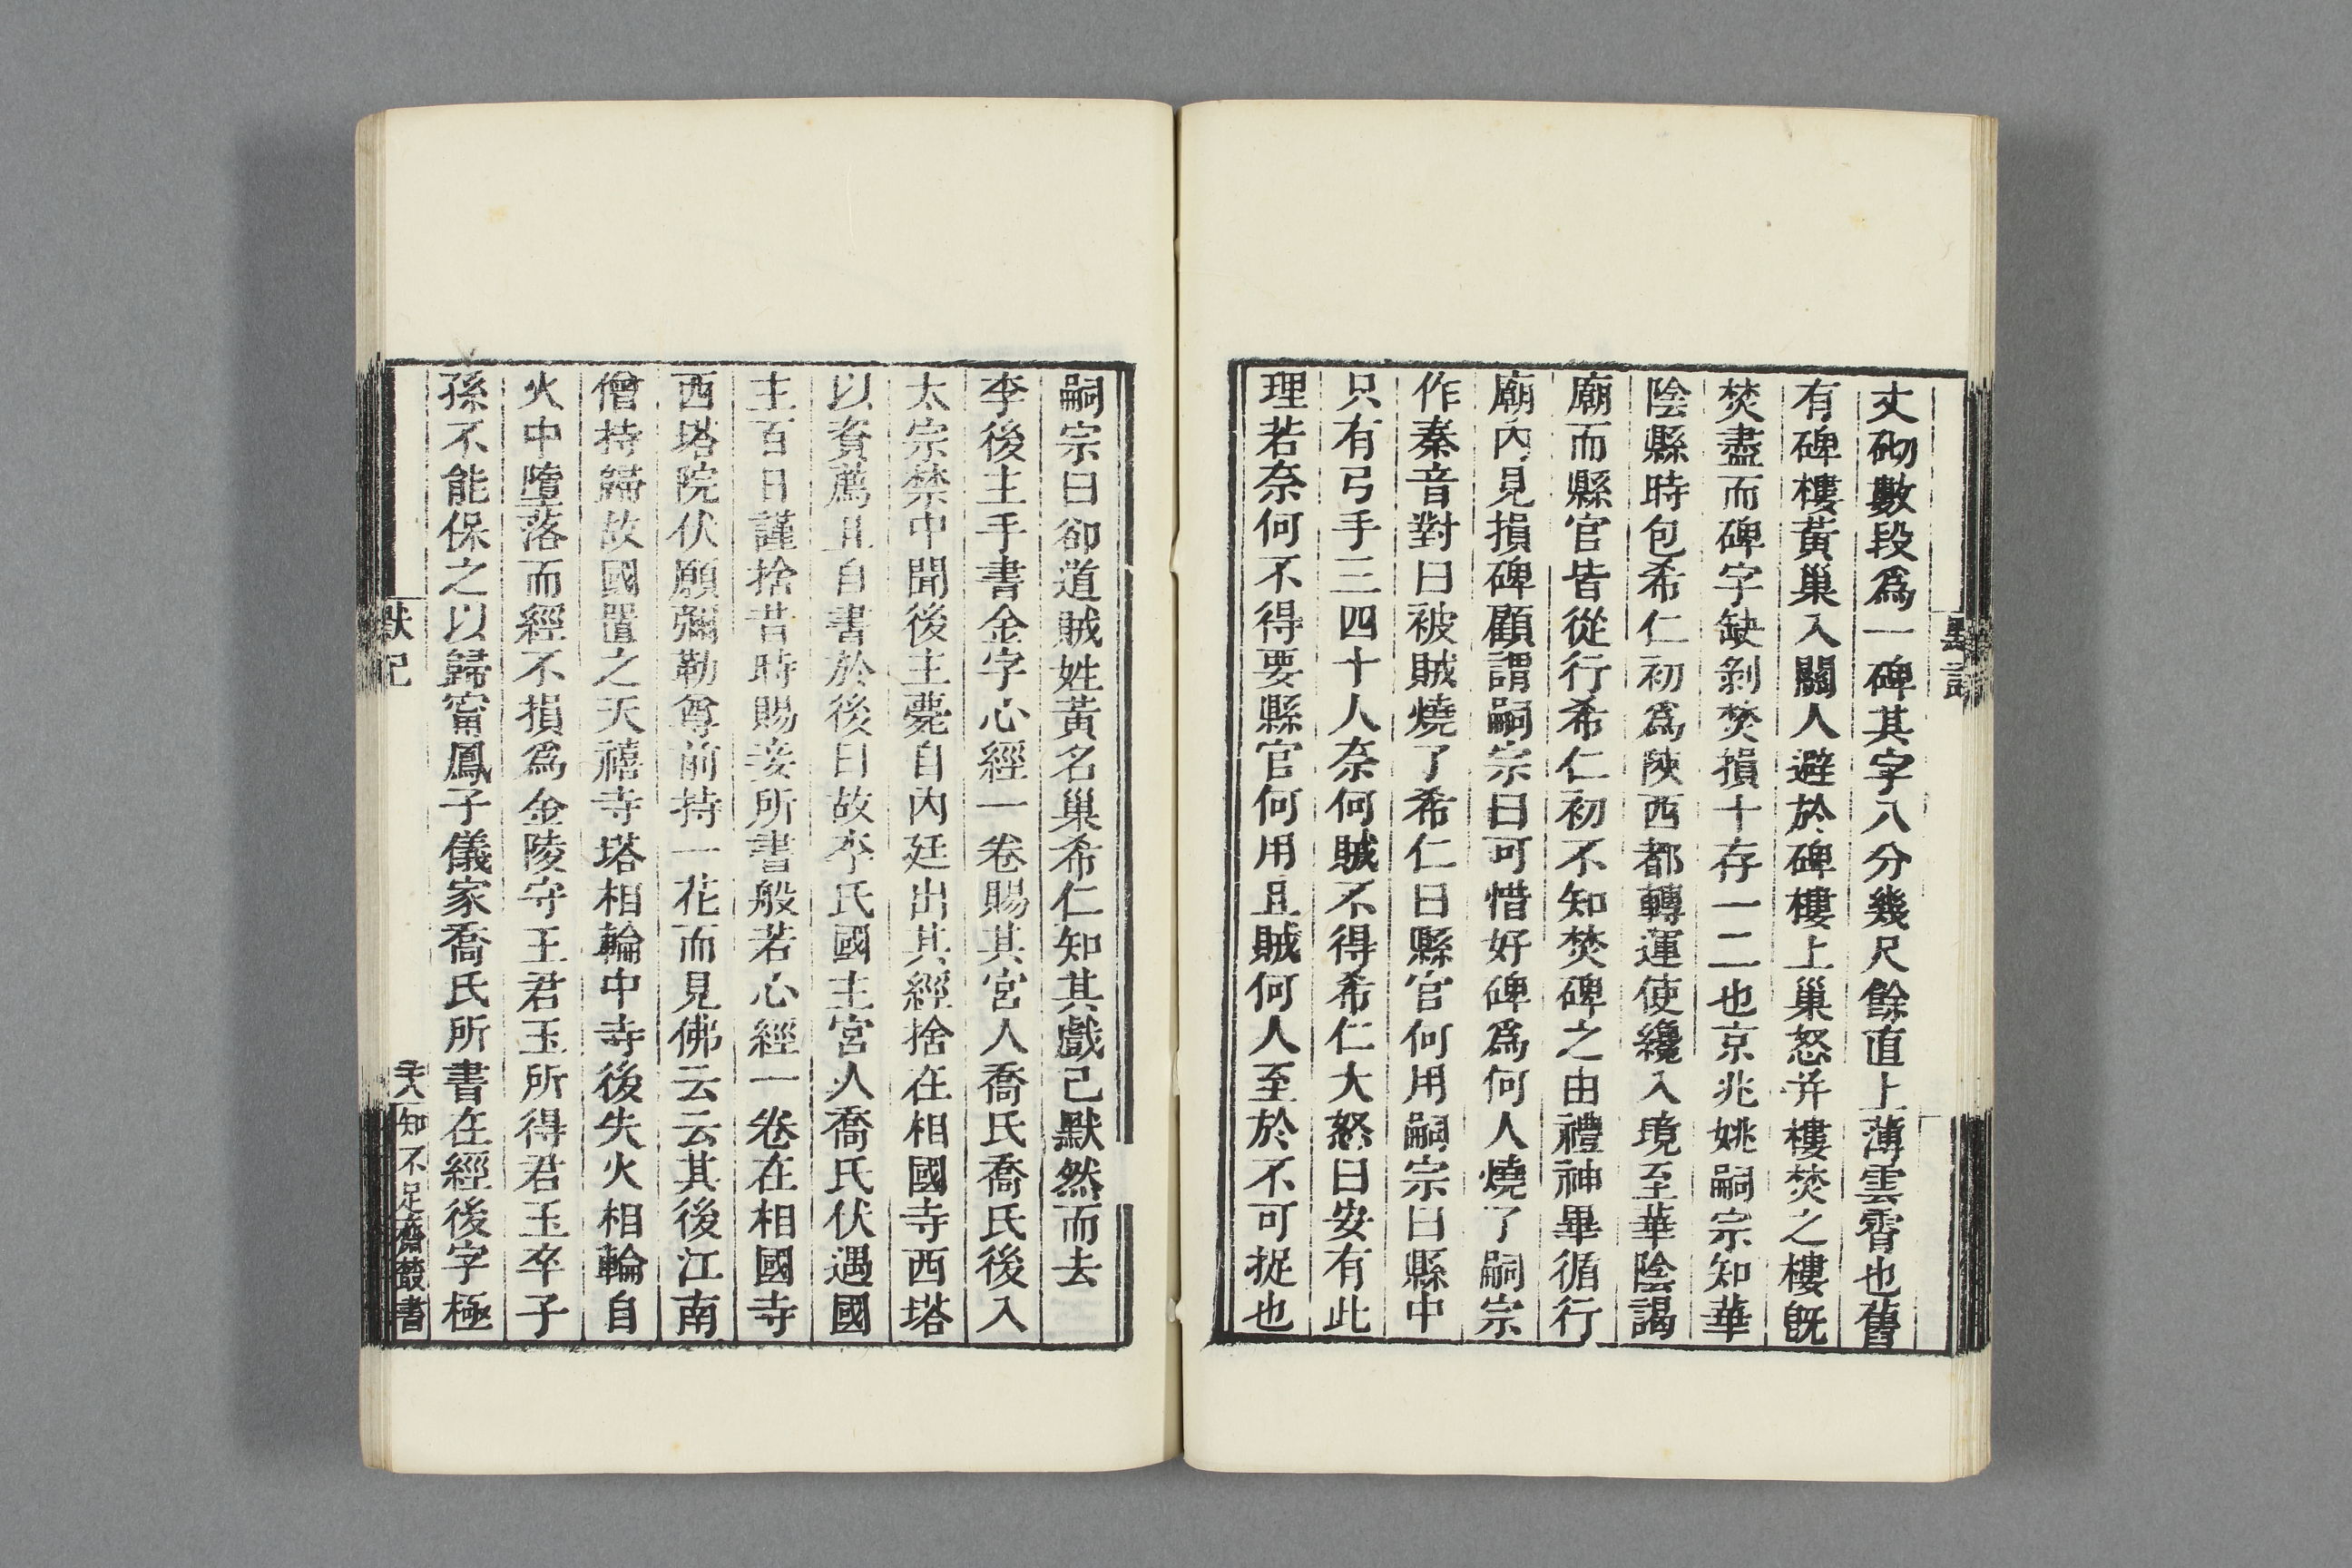 丈砌數段爲一碑其字八分幾尺餘直上薄雲霄也舊
有碑樓黃巢入關人避於碑樓上巢怒并樓焚之樓旣
焚盡而碑字缺剝焚損十存一二也京兆姚嗣宗知華
陰縣時包希仁初爲陝西都轉運使纔入境至華陰謁
廟而縣官皆從行希仁初不知焚碑之由禮神畢循行
廟內見損碑顧謂嗣宗曰可惜好碑爲何人燒了嗣宗
作秦音對曰被賊燒了希仁曰縣官何用嗣宗曰縣中
只有弓手三四十人奈何賊不得希仁大怒曰安有此
理若奈何不得要縣官何用且賊何人至於不可捉也
嗣宗曰卻道賊姓黃名巢希仁知其戲己默然而去
李後主手書金字心經一卷賜其宮人喬氏喬氏後入
太宗禁中聞後主薨自內廷出其經捨在相國寺西塔
以資薦且自書於後曰故李氏國主宮人喬氏伏遇國
主百日謹捨昔時賜妾所書般若心經一卷在相國寺
西塔院伏願彌勒尊前持一花而見佛云云其後江南
僧持歸故國置之天禧寺塔相輪中寺後失火相輪自
火中墮落而經不損爲金陵守王君玉所得君玉卒子
孫不能保之以歸甯鳳子儀家喬氏所書在經後字極
默記
知不足齋叢書